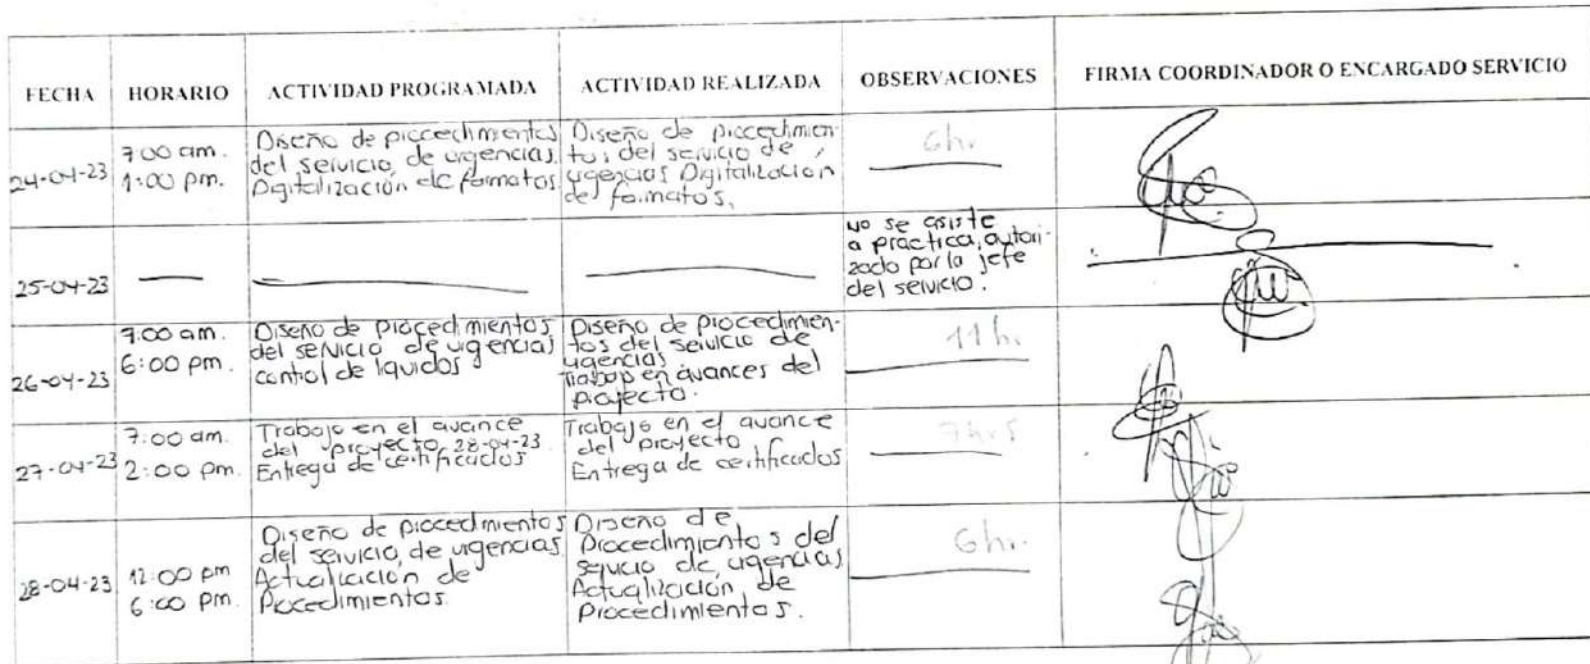 FECHA HORARIO ACTIVIDAD PROGRAMADA ACTIVIDAD REALIZADA OBSERVACIONES FIRMA COORDINADOR O ENCARGADO SERVICIO
24-04-23
7:00 am.
1:00 pm.
Diseño de procedimientos
del servicio de urgencias.
Digitalización de formatos
Diseño de procedimien-
tos del servicio de
urgencias Digitalización
de formatos.
6hr.
25-04-23
No se asiste
a practica, autori-
zado por la jefe
del servicio.
26-04-23
7:00 am.
6:00 pm.
Diseño de procedimientos
del servicio de urgencias
control de liquidos
Diseño de procedimien-
tos del servicio de
urgencias.
Trabajo en avances del
proyecto.
11 h.
27-04-23
7:00 am.
2:00 pm.
Trabajo en el avance
del proyecto 28-04-23
Entrega de certificados
Trabajo en el avance
del proyecto
Entrega de certificados
7hrs
28-04-23
12:00 pm
6:00 pm.
Diseño de procedimientos
del servicio de urgencias
Actualización de
Procedimientos.
Diseño de
Procedimientos del
servicio de urgencias
Actualización de
Procedimientos.
6hr.